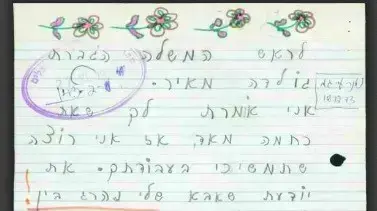 לראש המשלה הגברת
גולדה מאיר.
אני אומרת לך שאת
חכמה מאד, אז אני רוצה
שתמשיכי בעבודתך. את
יודעת שאבא שלי נהרג בין